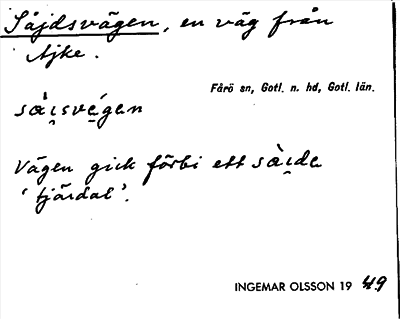 Såjdsvägen, en väg från
Ajke.
Fårö sn, Gotl. n. hd, Gotl. län.
sȧi̯sve̱gen
Vägen gick förbi ett sài̯de
'tjärdal'.
INGEMAR OLSSON 19 49